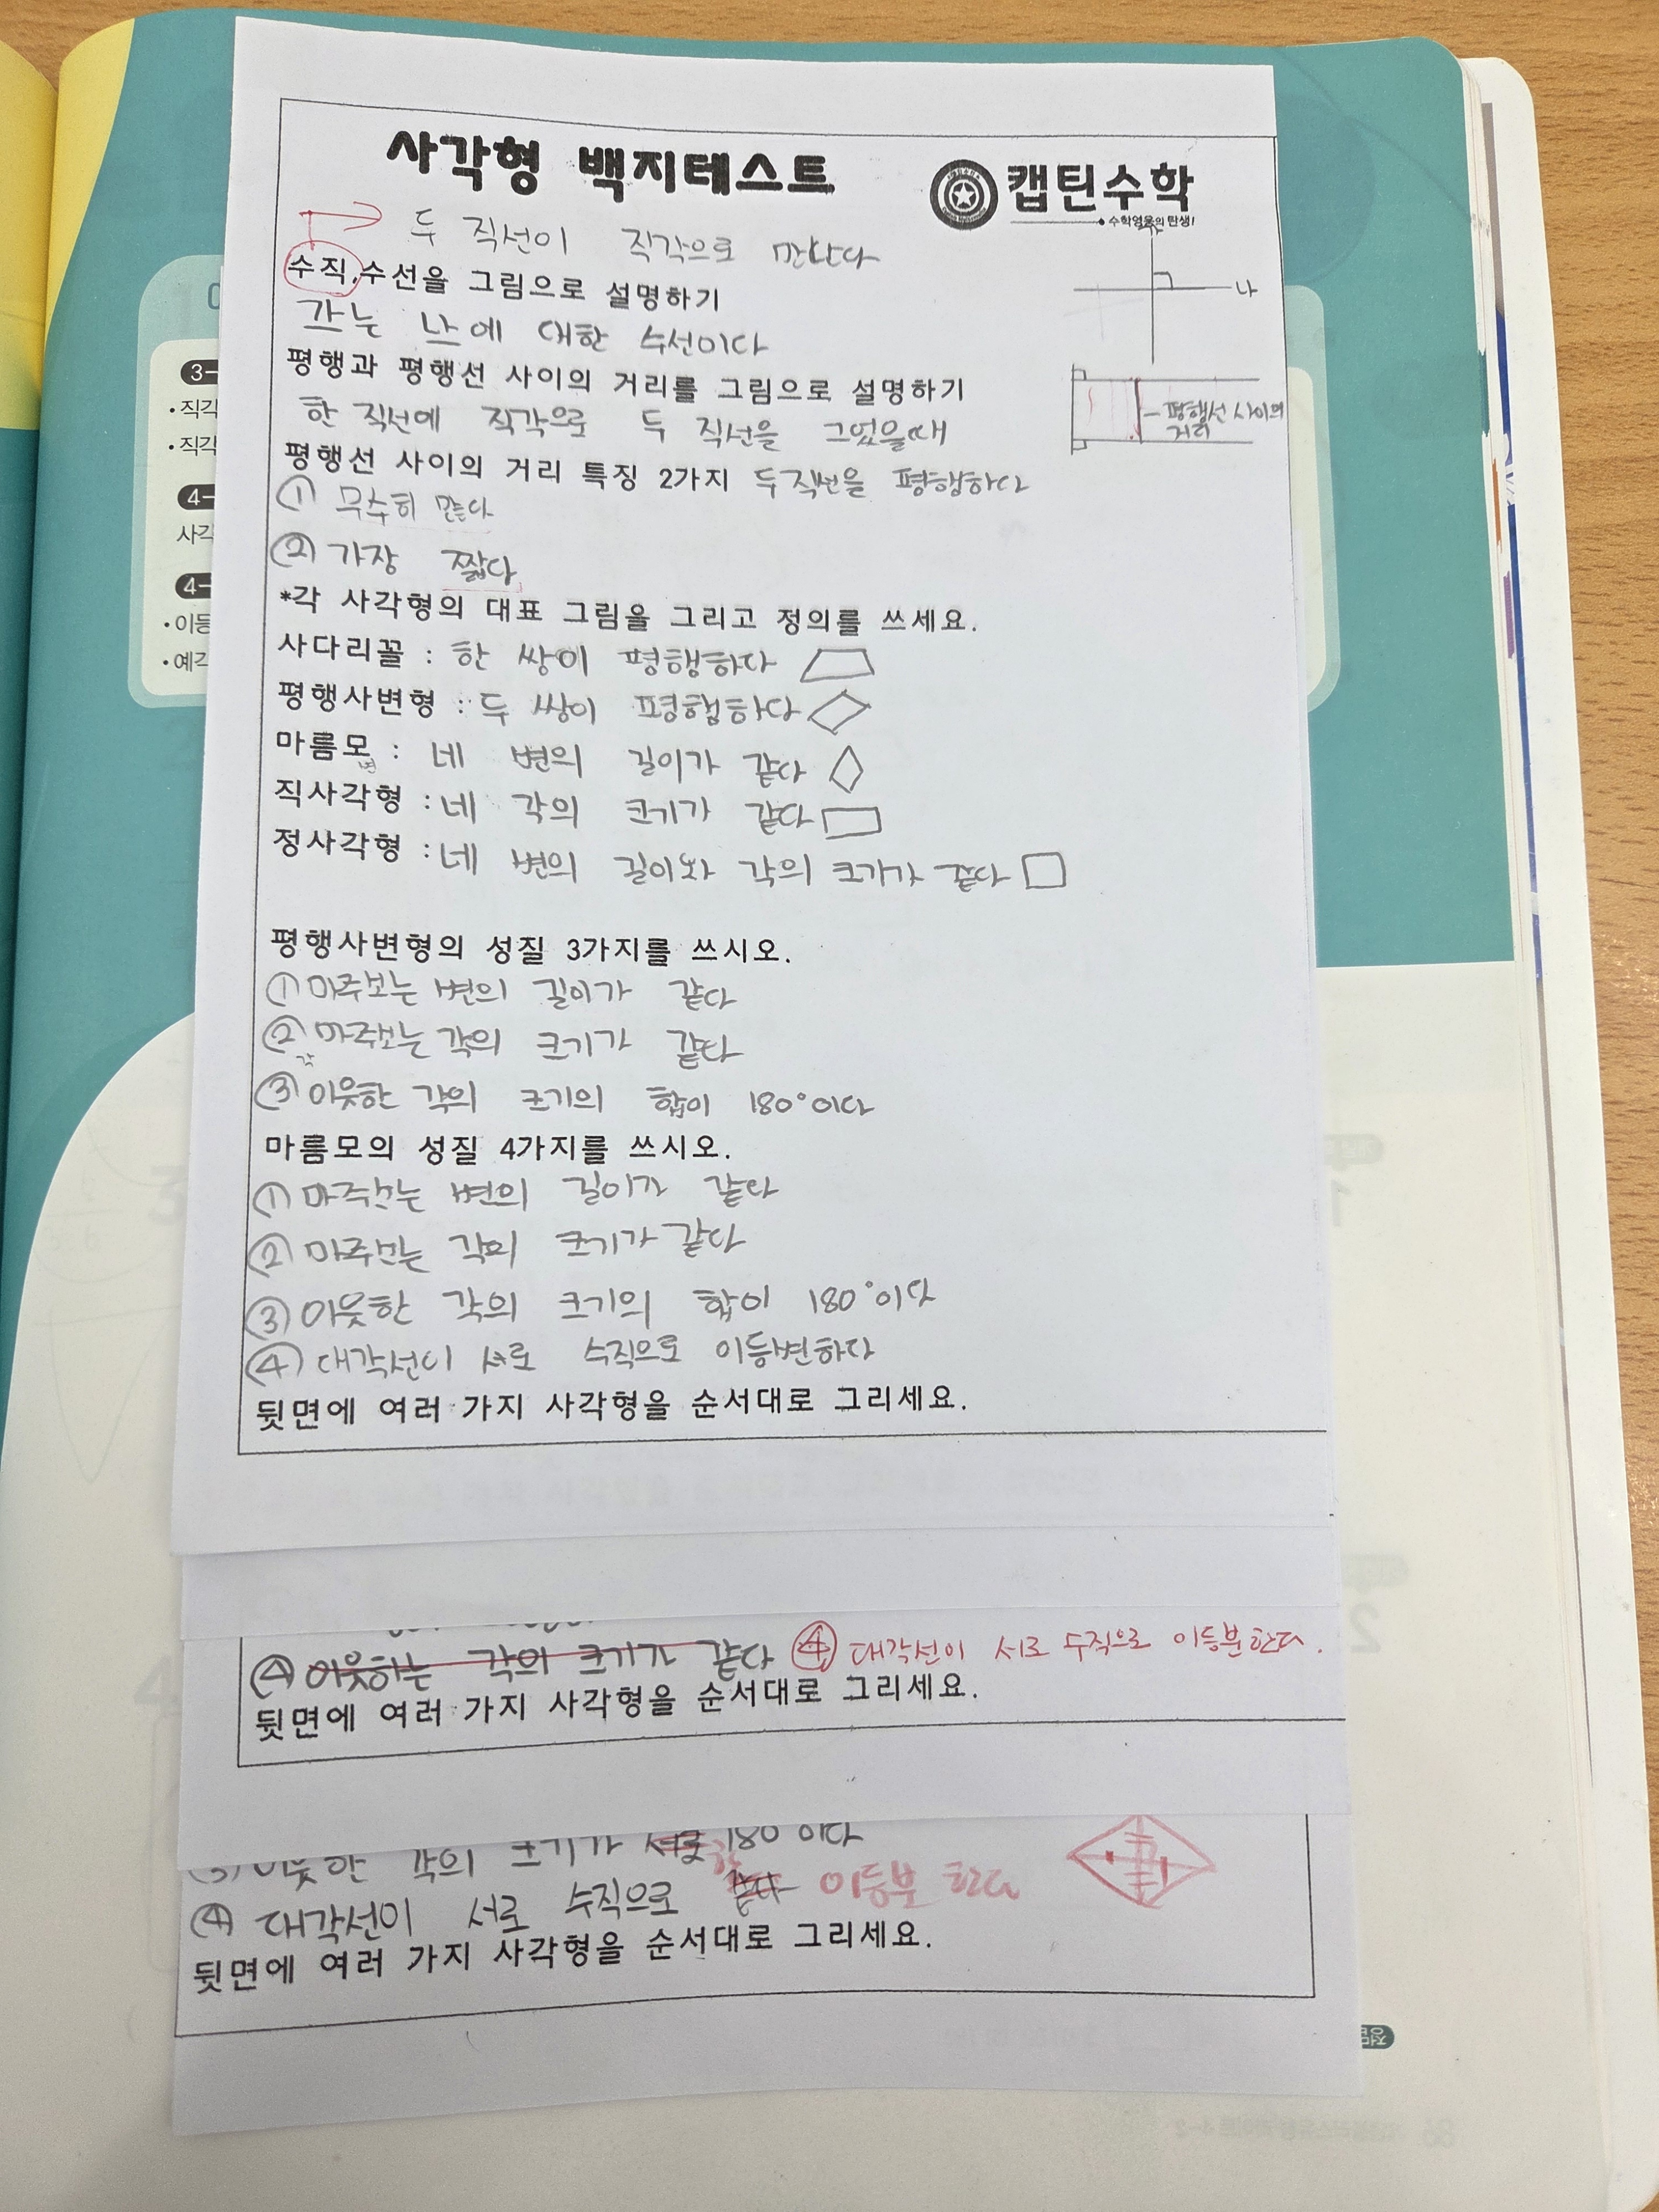 사각형 백지테스트
캡틴수학
수학영웅의 탄생!
두 직선이 직각으로 만난다
수직,수선을 그림으로 설명하기
가는 나에 대한 수선이다
나
평행과 평행선 사이의 거리를 그림으로 설명하기
한 직선에 직각으로 두 직선을 그었을때
평행선 사이의 거리
평행선 사이의 거리 특징 2가지 두직선을 평행하다
① 무수히 많다
② 가장 짧다
*각 사각형의 대표 그림을 그리고 정의를 쓰세요.
사다리꼴 : 한 쌍이 평행하다
평행사변형 : 두 쌍이 평행하다
마름모 : 네 변의 길이가 같다
직사각형 : 네 각의 크기가 같다
정사각형 : 네 변의 길이와 각의 크기가 같다
평행사변형의 성질 3가지를 쓰시오.
① 마주보는 변의 길이가 같다
② 마주보는 각의 크기가 같다
③ 이웃한 각의 크기의 합이 180°이다
마름모의 성질 4가지를 쓰시오.
① 마주보는 변의 길이가 같다
② 마주보는 각의 크기가 같다
③ 이웃한 각의 크기의 합이 180°이다
④ 대각선이 서로 수직으로 이등변하다
뒷면에 여러 가지 사각형을 순서대로 그리세요.
④ 이웃하는 각의 크기가 같다 ④ 대각선이 서로 수직으로 이등분한다.
뒷면에 여러 가지 사각형을 순서대로 그리세요.
③ 이웃한 각의 크기가 서로 180 이다
④ 대각선이 서로 수직으로 같다 이등분 한다
뒷면에 여러 가지 사각형을 순서대로 그리세요.
3-
•직각
•직각
4-
사각
4-
•이등
•예각